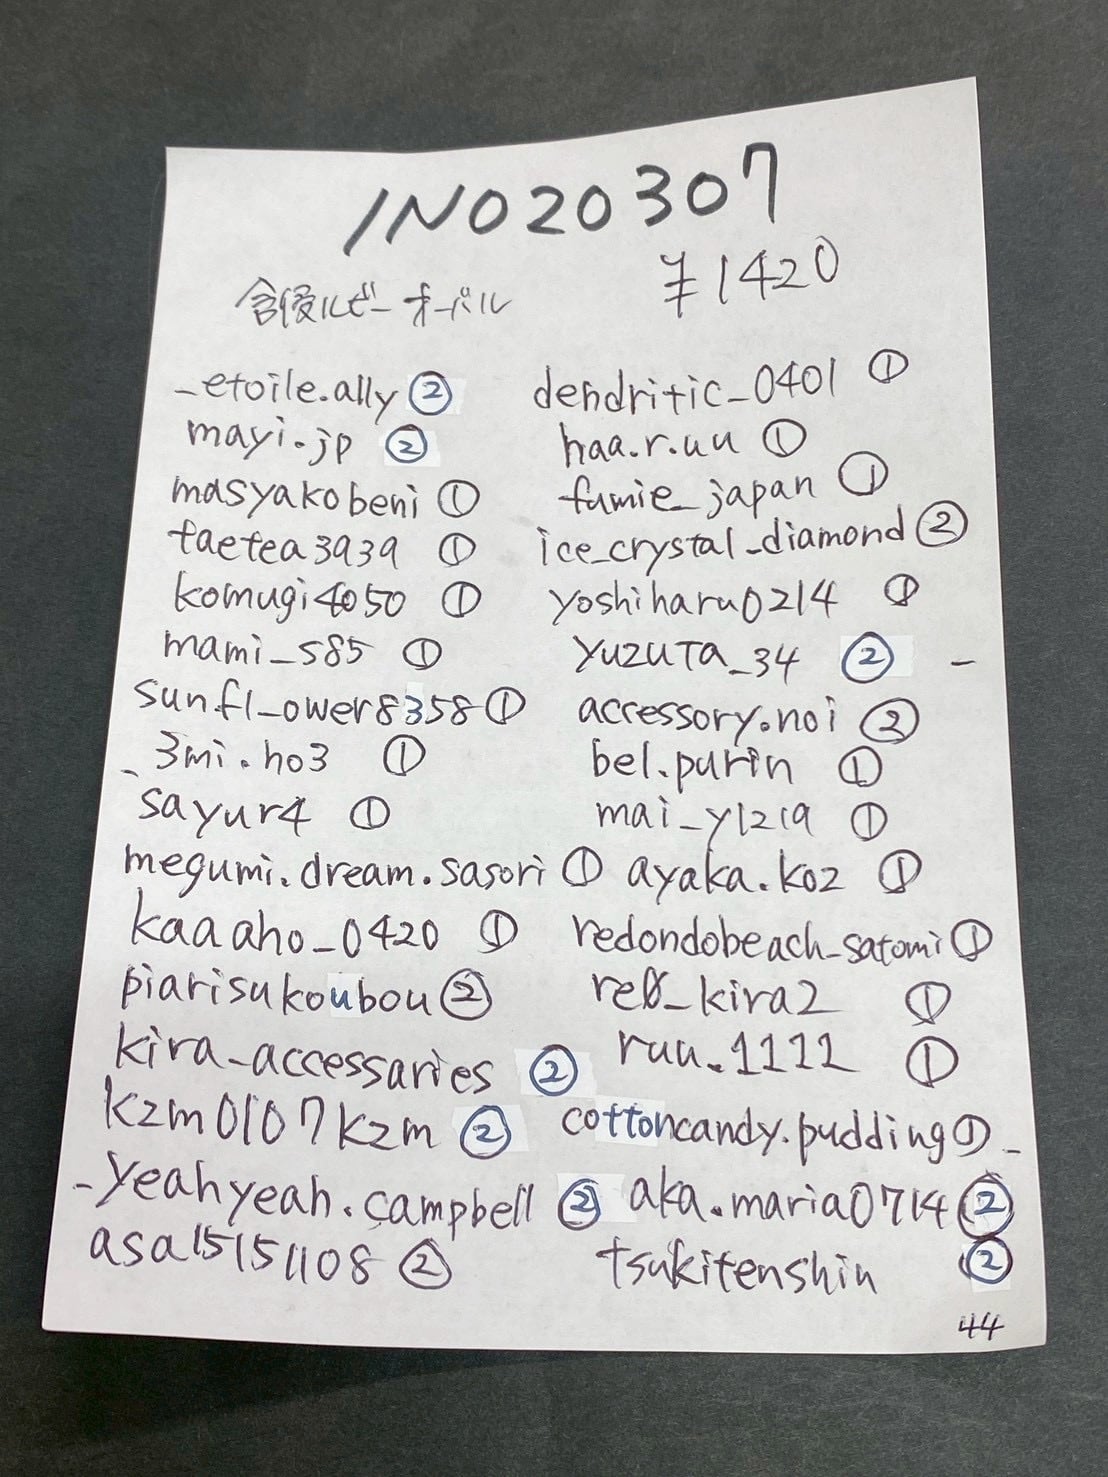 INO20307
¥1420
含侵ルビーオーバル
_etoile.ally ②
mayi.jp ②
masyakobeni ①
taetea3939 ①
komugi4050 ①
mami_s85 ①
sun.fl_ower8358 ①
_3mi.ho3 ①
sayur4 ①
megumi.dream.sasori ①
kaaaho_0420 ①
piarisukoubou ②
kira_accessaries ②
kzm0107kzm ②
_yeahyeah.campbell ②
asa15151108 ②
dendritic_0401 ①
haa.r.uu ①
fumie_japan ①
ice_crystal_diamond ②
yoshiharu0214 ①
yuzuta_34 ② _
accessory.noi ②
bel.purin ①
mai_y1219 ①
ayaka.koz ①
redondobeach_satomi ①
re0_kira2 ①
ruu.1112 ①
cottoncandy.pudding ① _
aka.maria0714 ②
tsukitenshin ②
44